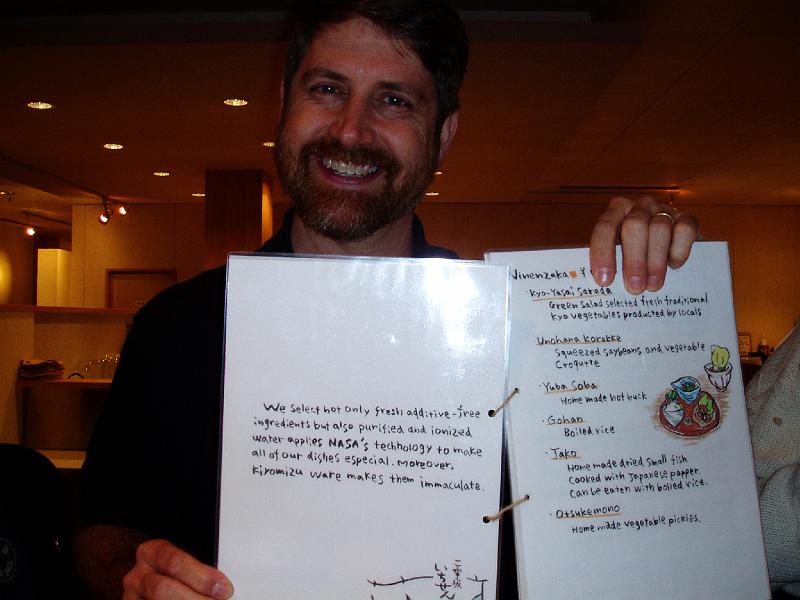 We select not only fresh additive-free
ingredients but also purified and ionized
water applies NASA's technology to make
all of our dishes especial. Moreover,
Kiyomizu ware makes them immaculate.
二寧坂
いちせん
Ninenzaka
Kyo-Yasai Sarada
Green salad selected fresh traditional
Kyo vegetables producted by locals
Unohana Korokke
Squeezed soybeans and vegetable
Croqutte
Yuba Soba
Home made hot buck
Gohan
Boiled rice
Jako
Home made dried small fish
cooked with Japanese papper.
Can be eaten with boiled rice.
Otsukemono
Home made vegetable pickles.